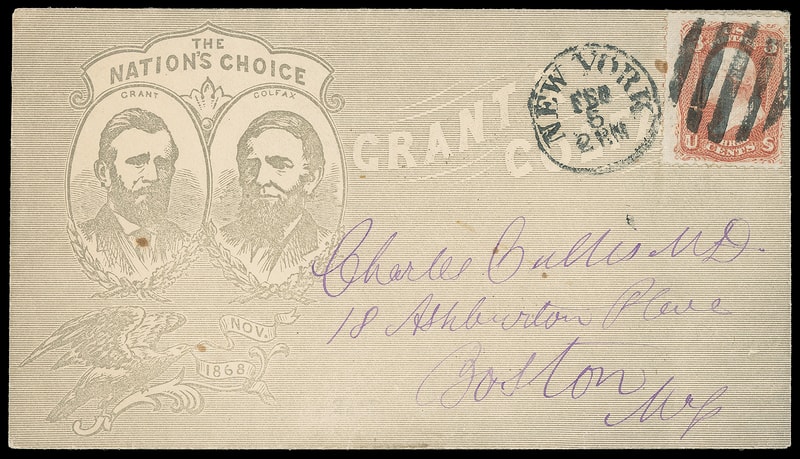 THE
NATION'S CHOICE
GRANT
COLFAX
GRANT
NEW YORK
FEB
5
2 PM
U S
CENTS
Charles Cullis M.D.
18 Ashburton Place
Boston
NOV.
1868